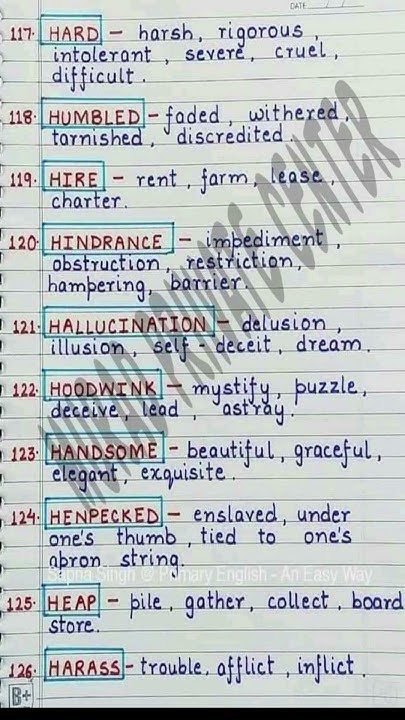 DATE / /
117. HARD - harsh, rigorous,
intolerant, severe, cruel,
difficult.
118. HUMBLED - faded, withered,
tarnished, discredited.
119. HIRE - rent, farm, lease,
charter.
120. HINDRANCE - impediment,
obstruction, restriction,
hampering, barrier.
121. HALLUCINATION - delusion,
illusion, self-deceit, dream.
122. HOODWINK - mystify, puzzle,
deceive, lead, astray.
123. HANDSOME - beautiful, graceful,
elegant, exquisite.
124. HENPECKED - enslaved, under
one's thumb, tied to one's
apron string.
Sapna Singh @ Primary English - An Easy Way
125. HEAP - pile, gather, collect, board
store.
126. HARASS - trouble, afflict, inflict.
B+